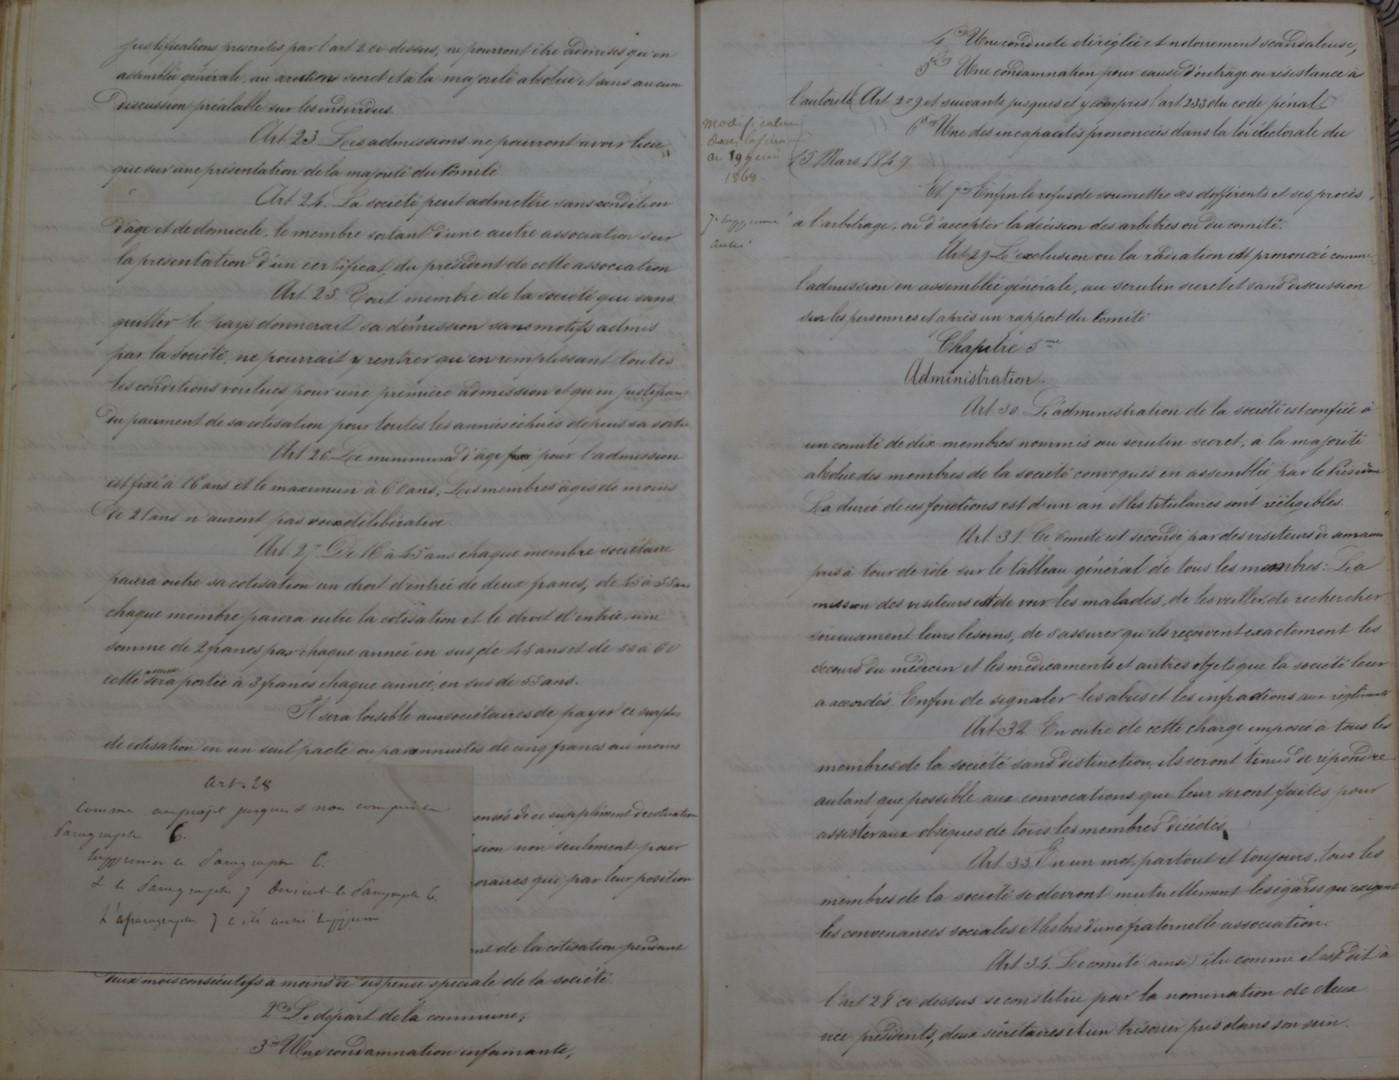 justifications prescrites par l'art 2 ci-dessus, ne pourront être admises qu'en
assemblée générale, au scrutin secret et à la majorité absolue et sans aucune
discussion préalable sur les individus.
Art 23. Les admissions ne pourront avoir lieu
que sur une présentation de la majorité du Comité
Art 24. La société peut admettre sans condition
d'âge et de domicile, le membre sortant d'une autre association sur
la présentation d'un certificat du président de cette association
Art 25. Tout membre de la société qui sans
quitter le pays donnerait sa démission sans motifs admis
par la société, ne pourrait y rentrer qu'en remplissant toutes
les conditions voulues pour une première admission et qu'en justifiant
du paiement de sa cotisation pour toutes les années échues depuis sa sortie
Art 26. Le minimum d'âge pour l'admission
est fixé à 16 ans et le maximum à 60 ans, Les membres âgés de moins
de 21 ans n'auront pas voix délibérative.
Art. 27. De 16 à 45 ans chaque membre sociétaire
paiera outre sa cotisation un droit d'entrée de deux francs, de 45 à 55 ans
chaque membre paiera outre la cotisation et le droit d'entrée, une
somme de 2 francs par chaque année en sus de 45 ans et de 55 à 60
cette somme sera portée à 3 francs chaque année, en sus de 55 ans.
Il sera loisible aux sociétaires de payer ce surplus
de cotisation en un seul pacte ou par annuités de cinq francs au moins
art. 28
Comme au projet jusques et non compris le
Paragraphe 6.
Supprimer le Paragraphe 6.
et le Paragraphe 7 devient le Paragraphe 6.
Le paragraphe 7 a été aussi supprimé
de ce supplément de cotisation
sion non seulement pour
oraires qui, par leur position
de la cotisation pendant
deux mois consécutifs à moins de dispense spéciale de la société.
2° Le départ de la commune;
3° Une condamnation infamante;
4° Une conduite déréglée et notoirement scandaleuse;
5° Une condamnation pour cause d'outrage ou résistance à
l'autorité (Art 209 et suivants jusques et y compris l'art 233 du code pénal)
6° Une des incapacités prononcées dans la loi électorale du
15 Mars 1849.
Modification
dans la séance
du 19
1868
Et 7° Enfin le refus de soumettre ses différents et ses procès
à l'arbitrage, ou d'accepter la décision des arbitres ou du comité.
7° supprimé
aussi
Art 29. L'exclusion ou la radiation est prononcée comme
l'admission en assemblée générale, au scrutin secret et sans discussion
sur les personnes et après un rapport du Comité
Chapitre 5me
Administration.
Art 30. L'administration de la société est confiée à
un comité de dix membres nommés au scrutin secret, à la majorité
absolue des membres de la société convoqués en assemblée par le Président
La durée de ces fonctions est d'un an et les titulaires sont rééligibles.
Art. 31. Ce Comité est secondé par des visiteurs de semaine
pris à tour de rôle sur le tableau général de tous les membres: La
mission des visiteurs est de voir les malades, de les veiller, de rechercher
sérieusement leurs besoins, de s'assurer qu'ils reçoivent exactement les
secours du médecin et les médicaments et autres objets que la société leur
a accordés. Enfin de signaler les abus et les infractions aux règlements
Art 32. En outre de cette charge imposée à tous les
membres de la société sans distinction, ils seront tenus de répondre
autant que possible aux convocations qui leur seront faites pour
assister aux obsèques de tous les membres décédés.
Art. 33. En un mot, partout et toujours, tous les
membres de la société se devront mutuellement les égards qu'exigent
les convenances sociales et les lois d'une fraternelle association.
Art. 34. Le comité ainsi élu comme il est dit à
l'art 28 ci dessus se constitue par la nomination de deux
vice présidents, deux secrétaires et un trésorier pris dans son sein.